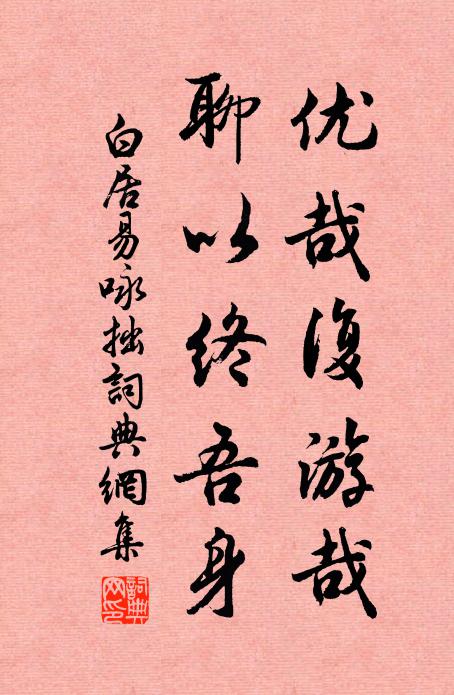 优哉復游哉
聊以终吾身
白居易咏拙詞典網集
詞典网印